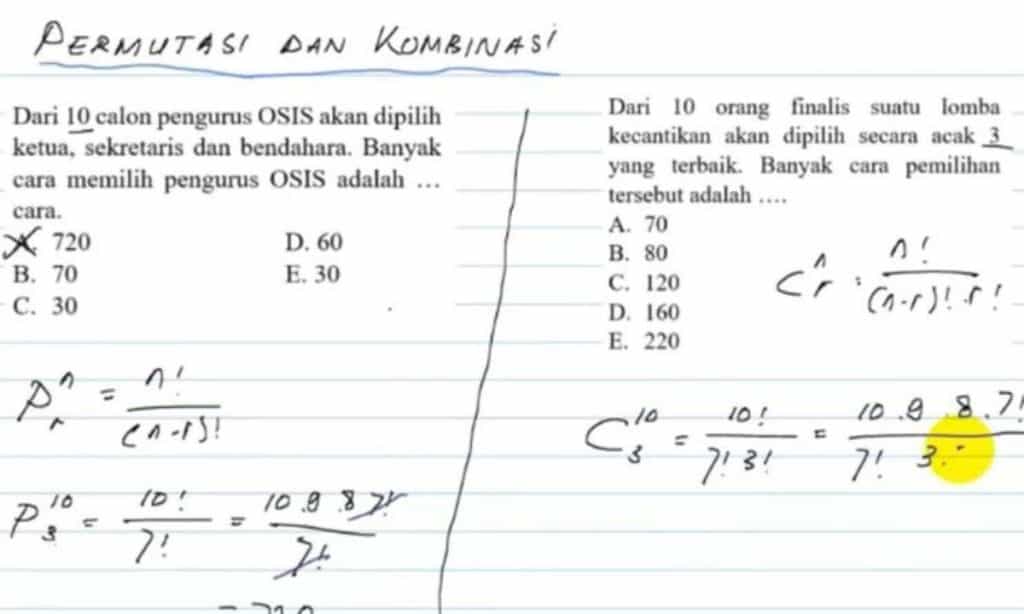 PERMUTASI DAN KOMBINASI
Dari 10 calon pengurus OSIS akan dipilih
ketua, sekretaris dan bendahara. Banyak
cara memilih pengurus OSIS adalah …
cara.
A. 720 D. 60
B. 70 E. 30
C. 30
P n r = n! / (n-r)!
P 10 3 = 10! / 7! = 10.9.8 7! / 7!
= 720
Dari 10 orang finalis suatu lomba
kecantikan akan dipilih secara acak 3
yang terbaik. Banyak cara pemilihan
tersebut adalah ….
A. 70
B. 80
C. 120
D. 160
E. 220
C n r = n! / (n-r)! r!
C 10 3 = 10! / 7! 3! = 10.9.8.7! / 7! 3.